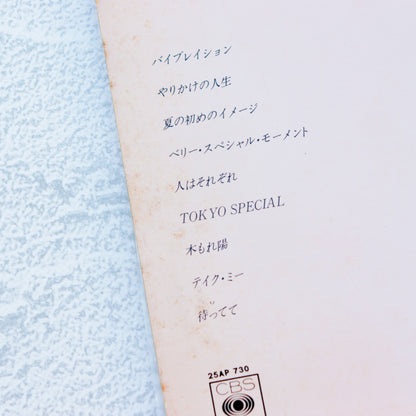 バイブレイション
やりかけの人生
夏の初めのイメージ
ベリー・スペシャル・モーメント
人はそれぞれ
TOKYO SPECIAL
木もれ陽
テイク・ミー
待ってて
25AP 730
CBS